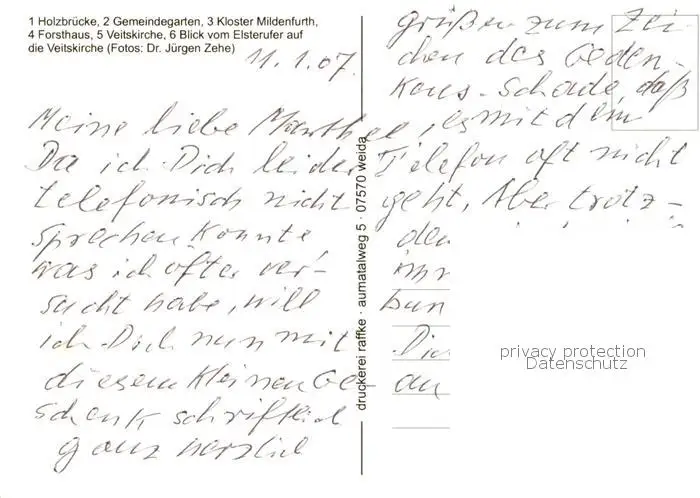 1 Holzbrücke, 2 Gemeindegarten, 3 Kloster Mildenfurth,
4 Forsthaus, 5 Veitskirche, 6 Blick vom Elsterufer auf
die Veitskirche (Fotos: Dr. Jürgen Zehe)
11.1.07.
Meine liebe
Da ich Dich leider
telefonisch nicht
sprechen konnte
was ich öfter ver-
sucht habe, will
ich Dich nun mit
diesem kleinen Ge-
schenk schriftlich
ganz herzlich
druckerei raffke · aumatalweg 5 · 07570 weida
grüßen zum Zei-
chen des Geden-
kens. Schade, daß
es mit dem
Telefon oft nicht
geht, Aber trotz-
dem
privacy protection
Datenschutz
an